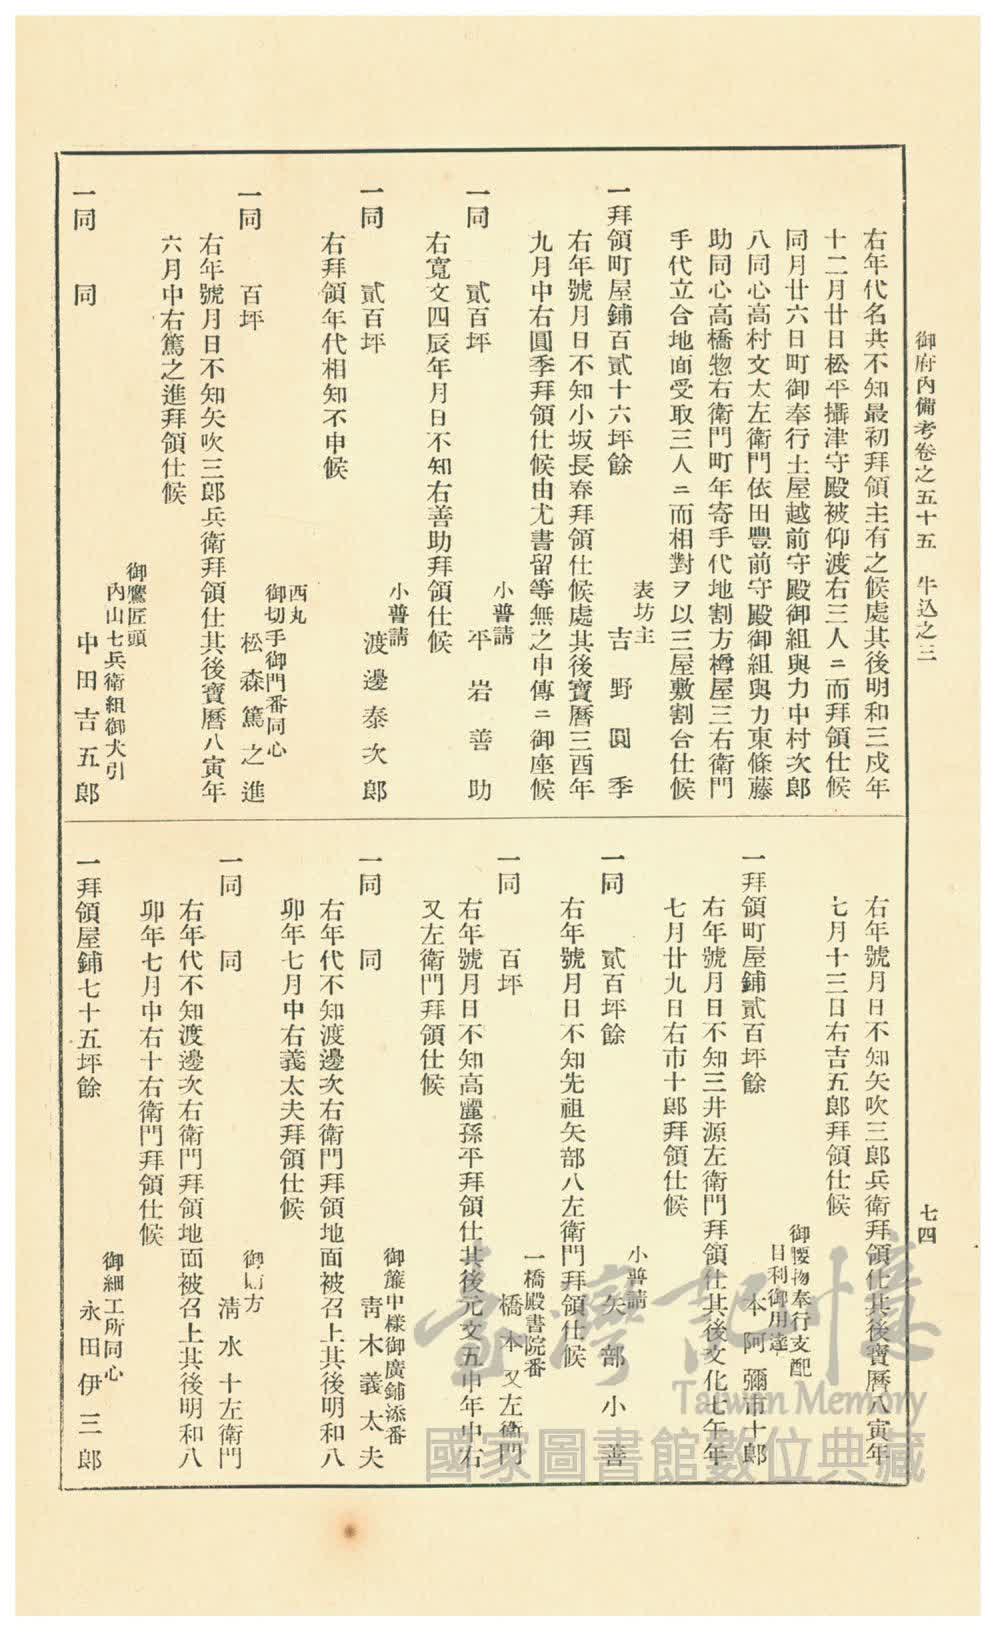 御府內備考卷之五十五 牛込之三
七四
右年代名共不知最初拜領主有之候處其後明和三戌年
十二月廿日松平攝津守殿被仰渡右三人ニ而拜領仕候
同月廿六日町御奉行土屋越前守殿御組與力中村次郎
八同心高村文太左衛門依田豐前守殿御組與力東條藤
助同心高橋惣右衛門町年寄手代地割方樽屋三右衛門
手代立合地面受取三人ニ而相對ヲ以三屋敷割合仕候
表坊主
一拜領町屋鋪百貳十六坪餘 吉野圓季
右年號月日不知小坂長春拜領仕候處其後寶曆三酉年
九月中右圓季拜領仕候由尤書留等無之申傳ニ御座候
小普請
一同 貳百坪 平岩善助
右寬文四辰年月日不知右善助拜領仕候
小普請
一同 貳百坪 渡邊泰次郎
右拜領年代相知不申候
西丸
御切手御門番同心
一同 百坪 松森篤之進
右年號月日不知矢吹三郎兵衛拜領仕其後寶曆八寅年
六月中右篤之進拜領仕候
御鷹匠頭
內山七兵衛組御犬引
一同 同 中田吉五郎
右年號月日不知矢吹三郎兵衛拜領仕其後寶曆八寅年
七月十三日右吉五郎拜領仕候
御腰物奉行支配
目利御用達
一拜領町屋鋪貳百坪餘 本阿彌市十郎
右年號月日不知三井源左衛門拜領仕其後文化七午年
七月廿九日右市十郎拜領仕候
小普請
一同 貳百坪餘 矢部小善
右年號月日不知先祖矢部八左衛門拜領仕候
一橋殿書院番
一同 百坪 橋本又左衛門
右年號月日不知高麗孫平拜領仕其後元文五申年中右
又左衛門拜領仕候
御簾中樣御廣鋪添番
一同 同 靑木義太夫
右年代不知渡邊次右衛門拜領地面被召上其後明和八
卯年七月中右義太夫拜領仕候
御 方
一同 同 淸水十左衛門
右年代不知渡邊次右衛門拜領地面被召上其後明和八
卯年七月中右十右衛門拜領仕候
御細工所同心
一拜領屋鋪七十五坪餘 永田伊三郎
臺灣記憶
Taiwan Memory
國家圖書館數位典藏